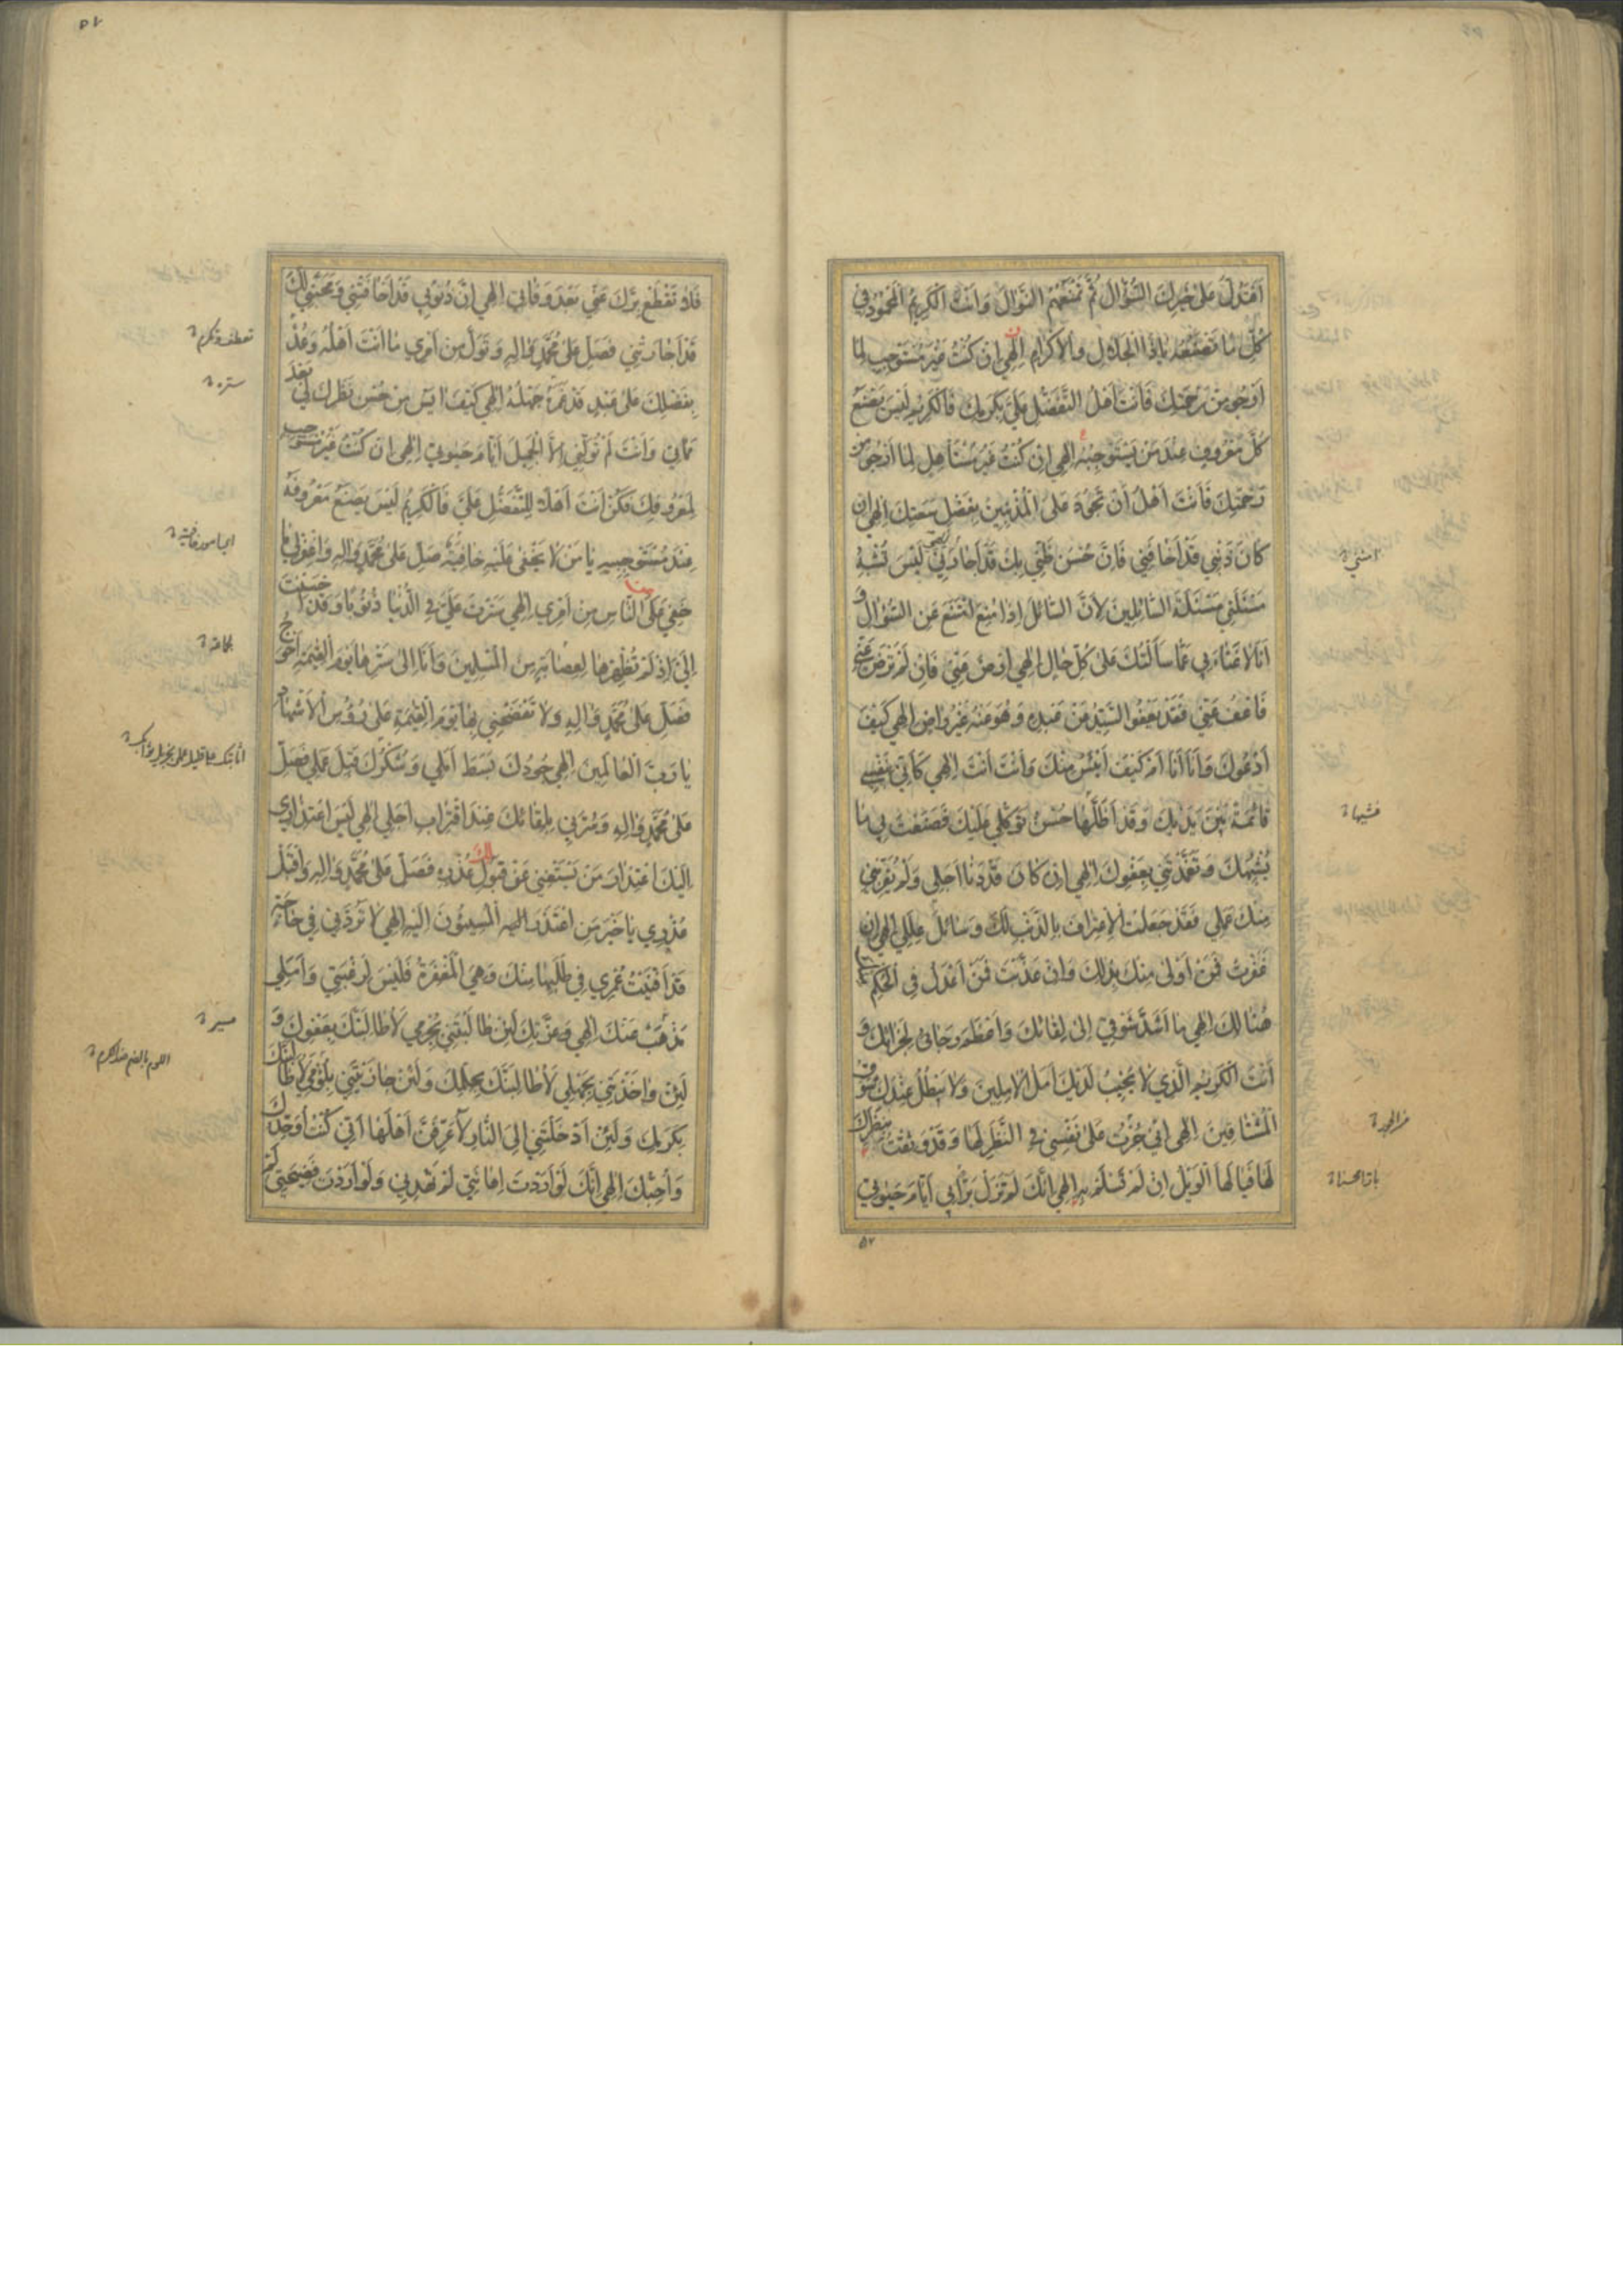 اَفَتَدُلُّ عَلىٰ خَيْرِكَ السُّؤّالَ ثُمَّ تَمْنَعُهُمُ النَّوالَ وَاَنْتَ الْكَرِيمُ الْمَحْمُودُ فِي
كُلِّ ما تَصْنَعُهُ يا ذَا الْجَلالِ وَالْاِكْرامِ اِلٰهِي اِنْ كُنْتُ غَيْرَ مُسْتَوْجِبٍ لِما
اَرْجُو مِنْ رَحْمَتِكَ فَاَنْتَ اَهْلُ التَّفَضُّلِ عَلَيَّ بِكَرَمِكَ فَالْكَرِيمُ لَيْسَ يَصْنَعُ
كُلَّ مَعْرُوفٍ عِنْدَ مَنْ يَسْتَوْجِبُهُ اِلٰهِي اِنْ كُنْتُ غَيْرَ مُسْتَأْهِلٍ لِما اَرْجُو مِنْ
رَحْمَتِكَ فَاَنْتَ اَهْلٌ اَنْ تَجُودَ عَلَى الْمُذْنِبِينَ بِفَضْلِ سَعَتِكَ اِلٰهِي اِنْ
كانَ ذَنْبِي قَدْ اَخافَنِي فَاِنَّ حُسْنَ ظَنِّي بِكَ قَدْ اَجارَنِي اِلٰهِي لَيْسَ تُشْبِهُ
مَسْئَلَتِي مَسْئَلَةَ السّائِلِينَ لِاَنَّ السّائِلَ اِذا مُنِعَ امْتَنَعَ عَنِ السُّؤالِ وَ
اَنَا لا غَناءَ بِي عَمّا سَاَلْتُكَ عَلىٰ كُلِّ حالٍ اِلٰهِي اِرْضَ عَنِّي فَاِنْ لَمْ تَرْضَ عَنِّي
فَاعْفُ عَنِّي فَقَدْ يَعْفُو السَّيِّدُ عَنْ عَبْدِهِ وَهُوَ عَنْهُ غَيْرُ راضٍ اِلٰهِي كَيْفَ
اَدْعُوكَ وَاَنَا اَنَا اَمْ كَيْفَ اَيْئَسُ مِنْكَ وَاَنْتَ اَنْتَ اِلٰهِي كَاَنِّي بِنَفْسِي
قائِمَةٌ بَيْنَ يَدَيْكَ وَقَدْ اَظَلَّها حُسْنُ تَوَكُّلِي عَلَيْكَ فَصَنَعْتَ بِي ما
يُشْبِهُكَ وَتَغَمَّدْتَنِي بِعَفْوِكَ اِلٰهِي اِنْ كانَ قَدْ دَنا اَجَلِي وَلَمْ يُقَرِّبْنِي
مِنْكَ عَمَلِي فَقَدْ جَعَلْتُ الْاِعْتِرافَ بِالذَّنْبِ لَكَ وَسائِلَ عِلَلِي اِلٰهِي اِنْ
غَفَرْتَ فَمَنْ اَوْلىٰ مِنْكَ بِذٰلِكَ وَاِنْ عَذَّبْتَ فَمَنْ اَعْدَلُ فِي الْحُكْمِ
هُنالِكَ اِلٰهِي ما اَشَدَّ شَوْقِي اِلىٰ لِقائِكَ وَاَعْظَمَ رَجائِي لِجَزائِكَ وَ
اَنْتَ الْكَرِيمُ الَّذِي لا يَخِيبُ لَدَيْكَ اَمَلُ الْآمِلِينَ وَلا يَبْطُلُ عِنْدَكَ شَوْقُ
الْمُشْتاقِينَ اِلٰهِي اِنِّي جُرْتُ عَلىٰ نَفْسِي فِي النَّظَرِ لَها وَقَدْ بَقِيَتْ نَظَرُكَ
لَها فَيا لَهَا الْوَيْلُ اِنْ لَمْ تَسْلَمْ بِهِ اِلٰهِي اِنَّكَ لَمْ تَزَلْ بَرًّا بِي اَيّامَ حَيٰوتِي
امنتني
۵۲
فَلا تَقْطَعْ بِرَّكَ عَنِّي بَعْدَ وَفاتِي اِلٰهِي اِنَّ ذُنُوبِي قَدْ اَخافَتْنِي وَمَحَبَّتِي لَكَ
قَدْ اَجارَتْنِي فَصَلِّ عَلىٰ مُحَمَّدٍ وَاٰلِهِ وَتَوَلَّ مِنْ اَمْرِي ما اَنْتَ اَهْلُهُ وَعُدْ
بِفَضْلِكَ عَلىٰ عَبْدٍ قَدْ غَمَرَهُ جَهْلُهُ اِلٰهِي كَيْفَ اٰيَسُ مِنْ حُسْنِ نَظَرِكَ لِي بَعْدَ
مَماتِي وَاَنْتَ لَمْ تُوَلِّنِي اِلَّا الْجَمِيلَ اَيّامَ حَيٰوتِي اِلٰهِي اِنْ كُنْتُ غَيْرَ مُسْتَوْجِبٍ
لِمَعْرُوفِكَ فَكُنْ اَنْتَ اَهْلًا لِلتَّفَضُّلِ عَلَيَّ فَالْكَرِيمُ لَيْسَ يَصْنَعُ مَعْرُوفَهُ
عِنْدَ مُسْتَوْجِبِيهِ يا مَنْ لا يَخْفىٰ عَلَيْهِ خافِيَةٌ صَلِّ عَلىٰ مُحَمَّدٍ وَاٰلِهِ وَاغْفِرْ لِي ما
خَفِيَ عَلَى النّاسِ مِنْ اَمْرِي اِلٰهِي سَتَرْتَ عَلَيَّ فِي الدُّنْيا ذُنُوبًا وَقَدْ اَحْسَنْتَ
اِلَيَّ اِذْ لَمْ تُظْهِرْها لِعِصابَةٍ مِنَ الْمُسْلِمِينَ وَاَنَا اِلىٰ سَتْرِها يَوْمَ الْقِيٰمَةِ اَحْوَجُ
فَصَلِّ عَلىٰ مُحَمَّدٍ وَاٰلِهِ وَلا تَفْضَحْنِي بِها يَوْمَ الْقِيٰمَةِ عَلىٰ رُؤُسِ الْاَشْهادِ
يا رَبَّ الْعالَمِينَ اِلٰهِي جُودُكَ بَسَطَ اَمَلِي وَشُكْرُكَ قَبِلَ عَمَلِي فَصَلِّ
عَلىٰ مُحَمَّدٍ وَاٰلِهِ وَسُرَّنِي بِلِقائِكَ عِنْدَ اقْتِرابِ اَجَلِي اِلٰهِي لَيْسَ اعْتِذارِي
اِلَيْكَ اعْتِذارَ مَنْ يَسْتَغْنِي عَنْ قَبُولِ عُذْرِهِ فَصَلِّ عَلىٰ مُحَمَّدٍ وَاٰلِهِ وَاقْبَلْ
عُذْرِي يا خَيْرَ مَنِ اعْتَذَرَ اِلَيْهِ الْمُسِيئُونَ اِلَيْهِ اِلٰهِي لا تَرُدَّنِي فِي حاجَةٍ
قَدْ اَفْنَيْتُ عُمْرِي فِي طَلَبِها مِنْكَ وَهِيَ الْمَغْفِرَةُ فَلَيْسَ لِرَغْبَتِي وَاَمَلِي
مَذْهَبٌ عَنْكَ اِلٰهِي وَعِزَّتِكَ لَئِنْ طالَبْتَنِي بِجُرْمِي لَاُطالِبَنَّكَ بِعَفْوِكَ وَ
لَئِنْ واخَذْتَنِي بِجَهْلِي لَاُطالِبَنَّكَ بِحِلْمِكَ وَلَئِنْ جازَيْتَنِي بِلُؤْمِي لَاُطالِبَنَّكَ
بِكَرَمِكَ وَلَئِنْ اَدْخَلْتَنِي اِلَى النّارِ لَاُعَرِّفَنَّ اَهْلَها اَنِّي كُنْتُ اُوَحِّدُكَ
وَاُحِبُّكَ اِلٰهِي اِنَّكَ لَوْ اَرَدْتَ اِهانَتِي لَمْ تَهْدِنِي وَلَوْ اَرَدْتَ فَضِيحَتِي لَمْ
تعطف وتكرم
ستره